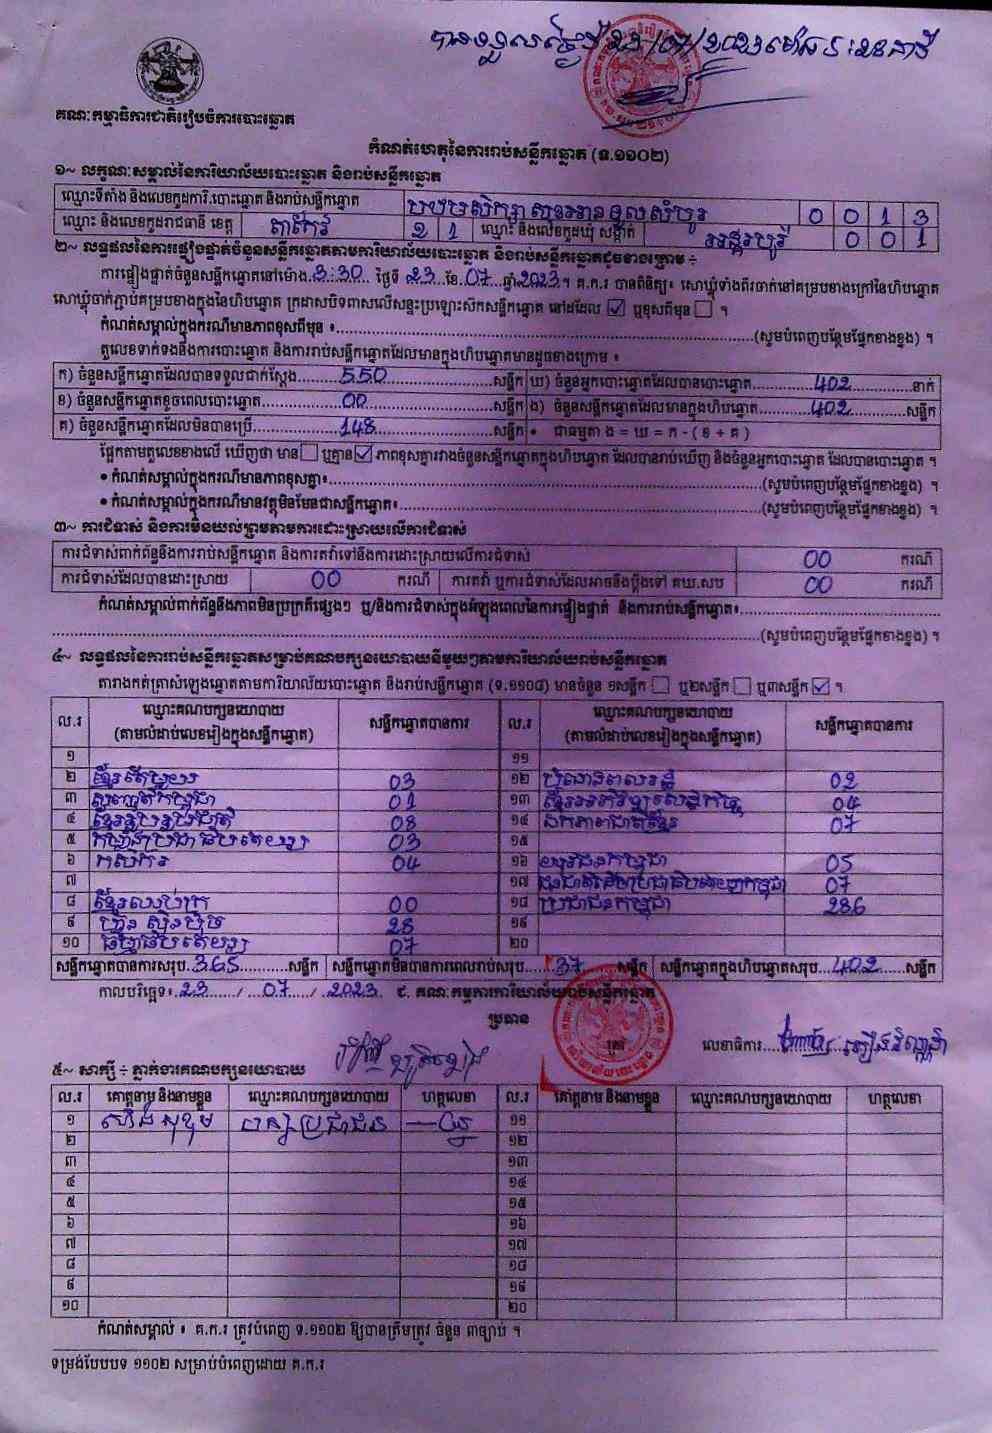 បានទទួលថ្ងៃទី 23/07/2023 ម៉ោង
គណៈកម្មាធិការជាតិរៀបចំការបោះឆ្នោត
កំណត់ហេតុនៃការរាប់សន្លឹកឆ្នោត (ទ.១១០២)
១~ លក្ខណៈសម្គាល់នៃការិយាល័យបោះឆ្នោត និងរាប់សន្លឹកឆ្នោត
ឈ្មោះទីតាំង និងលេខកូដការិ.បោះឆ្នោត និងរាប់សន្លឹកឆ្នោត បឋមសិក្សា 0 0 1 3
ឈ្មោះ និងលេខកូដរាជធានី ខេត្ត តាកែវ 2 1 ឈ្មោះ និងលេខកូដឃុំ សង្កាត់ អង្គរបូរី 0 0 1
២~ លទ្ធផលនៃការផ្ទៀងផ្ទាត់ចំនួនសន្លឹកឆ្នោតតាមការិយាល័យបោះឆ្នោត និងរាប់សន្លឹកឆ្នោតដូចខាងក្រោម ÷
ការផ្ទៀងផ្ទាត់ចំនួនសន្លឹកឆ្នោតនៅម៉ោង 3:30 ថ្ងៃទី 23 ខែ 07 ឆ្នាំ 2023។ គ.ក.រ បានពិនិត្យ៖ សោឃ្មុំទាំងពីរចាក់នៅគម្របខាងក្រៅនៃហិបឆ្នោត
សោឃ្មុំចាក់ភ្ជាប់គម្របខាងក្នុងនៃហិបឆ្នោត ក្រដាសបិទពាសលើសន្ទះប្រឡោះសិកសន្លឹកឆ្នោត នៅដដែល ☑ ឬខុសពីមុន ☐ ។
កំណត់សម្គាល់ក្នុងករណីមានភាពខុសពីមុន ៖ (សូមបំពេញបន្ថែមផ្នែកខាងខ្នង) ។
តួលេខទាក់ទងនឹងការបោះឆ្នោត និងការរាប់សន្លឹកឆ្នោតដែលមានក្នុងហិបឆ្នោតមានដូចខាងក្រោម ៖
ក) ចំនួនសន្លឹកឆ្នោតដែលបានទទួលជាក់ស្តែង 550 សន្លឹក ឃ) ចំនួនអ្នកបោះឆ្នោតដែលបានបោះឆ្នោត 402 នាក់
ខ) ចំនួនសន្លឹកឆ្នោតខូចពេលបោះឆ្នោត 00 សន្លឹក ង) ចំនួនសន្លឹកឆ្នោតដែលមានក្នុងហិបឆ្នោត 402 សន្លឹក
គ) ចំនួនសន្លឹកឆ្នោតដែលមិនបានប្រើ 148 សន្លឹក • ជាធម្មតា ង = ឃ = ក - (ខ + គ)
ផ្អែកតាមតួលេខខាងលើ ឃើញថា មាន ☐ ឬគ្មាន ☑ ភាពខុសគ្នារវាងចំនួនសន្លឹកឆ្នោតក្នុងហិបឆ្នោត ដែលបានរាប់ឃើញ និងចំនួនអ្នកបោះឆ្នោត ដែលបានបោះឆ្នោត ។
• កំណត់សម្គាល់ក្នុងករណីមានភាពខុសគ្នា៖ (សូមបំពេញបន្ថែមផ្នែកខាងខ្នង) ។
• កំណត់សម្គាល់ក្នុងករណីមានវត្ថុមិនមែនជាសន្លឹកឆ្នោត៖ (សូមបំពេញបន្ថែមផ្នែកខាងខ្នង) ។
៣~ ការជំទាស់ និងការមិនយល់ព្រមតាមការដោះស្រាយលើការជំទាស់
ការជំទាស់ពាក់ព័ន្ធនឹងការរាប់សន្លឹកឆ្នោត និងការតវ៉ាទៅនឹងការដោះស្រាយលើការជំទាស់ 00 ករណី
ការជំទាស់ដែលបានដោះស្រាយ 00 ករណី ការតវ៉ា ឬការជំទាស់ដែលអាចនឹងប្តឹងទៅ គឃ.សប 00 ករណី
កំណត់សម្គាល់ពាក់ព័ន្ធនឹងភាពមិនប្រក្រតីផ្សេងៗ ឬ/និងការជំទាស់ក្នុងអំឡុងពេលនៃការផ្ទៀងផ្ទាត់ និងការរាប់សន្លឹកឆ្នោត៖
(សូមបំពេញបន្ថែមផ្នែកខាងខ្នង) ។
៤~ លទ្ធផលនៃការរាប់សន្លឹកឆ្នោតសម្រាប់គណបក្សនយោបាយនីមួយៗតាមការិយាល័យរាប់សន្លឹកឆ្នោត
តារាងកត់ត្រាសំឡេងឆ្នោតតាមការិយាល័យបោះឆ្នោត និងរាប់សន្លឹកឆ្នោត (ទ.១១០៨) មានចំនួន ១សន្លឹក ☐ ឬ២សន្លឹក ☐ ឬ៣សន្លឹក ☑ ។
ល.រ ឈ្មោះគណបក្សនយោបាយ (តាមលំដាប់លេខរៀងក្នុងសន្លឹកឆ្នោត) សន្លឹកឆ្នោតបានការ ល.រ ឈ្មោះគណបក្សនយោបាយ (តាមលំដាប់លេខរៀងក្នុងសន្លឹកឆ្នោត) សន្លឹកឆ្នោតបានការ
១ ១១
២ ខ្មែរតែមួយ 03 ១២ 02
៣ សញ្ជាតិកម្ពុជា 01 ១៣ ខ្មែរអភិវឌ្ឍន៍សេដ្ឋកិច្ច 04
៤ ខ្មែររួបរួមជាតិ 08 ១៤ ឯកភាពជាតិខ្មែរ 07
៥ កម្លាំងប្រជាធិបតេយ្យ 03 ១៥
៦ កសិករ 04 ១៦ យុវជនកម្ពុជា 05
៧ ១៧ ជនជាតិដើមប្រជាធិបតេយ្យកម្ពុជា 07
៨ ខ្មែរឈប់ក្រ 00 ១៨ ប្រជាជនកម្ពុជា 286
៩ ហ៊្វុនស៊ិនប៉ិច 28 ១៩
១០ ធម្មាធិបតេយ្យ 07 ២០
សន្លឹកឆ្នោតបានការសរុប 365 សន្លឹក សន្លឹកឆ្នោតមិនបានការពេលរាប់សរុប 37 សន្លឹក សន្លឹកឆ្នោតក្នុងហិបឆ្នោតសរុប 402 សន្លឹក
កាលបរិច្ឆេទ៖ 23 / 07 / 2023 ជ. គណៈកម្មការការិយាល័យរាប់សន្លឹកឆ្នោត
ប្រធាន
លេខាធិការ
៥~ សាក្សី ÷ ភ្នាក់ងារគណបក្សនយោបាយ
ល.រ គោត្តនាម និងនាមខ្លួន ឈ្មោះគណបក្សនយោបាយ ហត្ថលេខា ល.រ គោត្តនាម និងនាមខ្លួន ឈ្មោះគណបក្សនយោបាយ ហត្ថលេខា
១ បក្សប្រជាជន ១១
២ ១២
៣ ១៣
៤ ១៤
៥ ១៥
៦ ១៦
៧ ១៧
៨ ១៨
៩ ១៩
១០ ២០
កំណត់សម្គាល់ ៖ គ.ក.រ ត្រូវបំពេញ ទ.១១០២ ឱ្យបានត្រឹមត្រូវ ចំនួន ៣ច្បាប់ ។
ទម្រង់បែបបទ ១១០២ សម្រាប់បំពេញដោយ គ.ក.រ